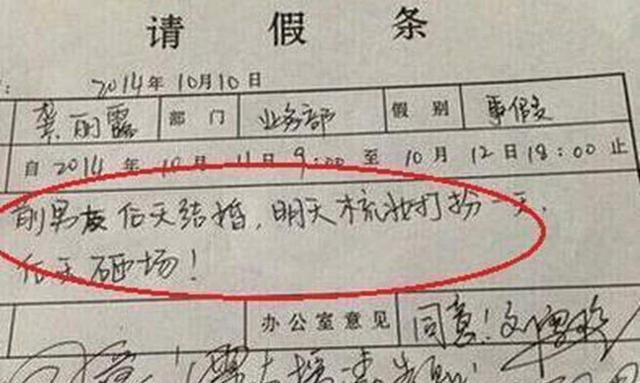 请假条
2014年10月10日
龚丽霞 部门 业务部 假别 事假
自2014年10月11日9:00至10月12日18:00止
前男友后天结婚,明天梳妆打扮一天.
后天砸场!
办公室意见 同意!